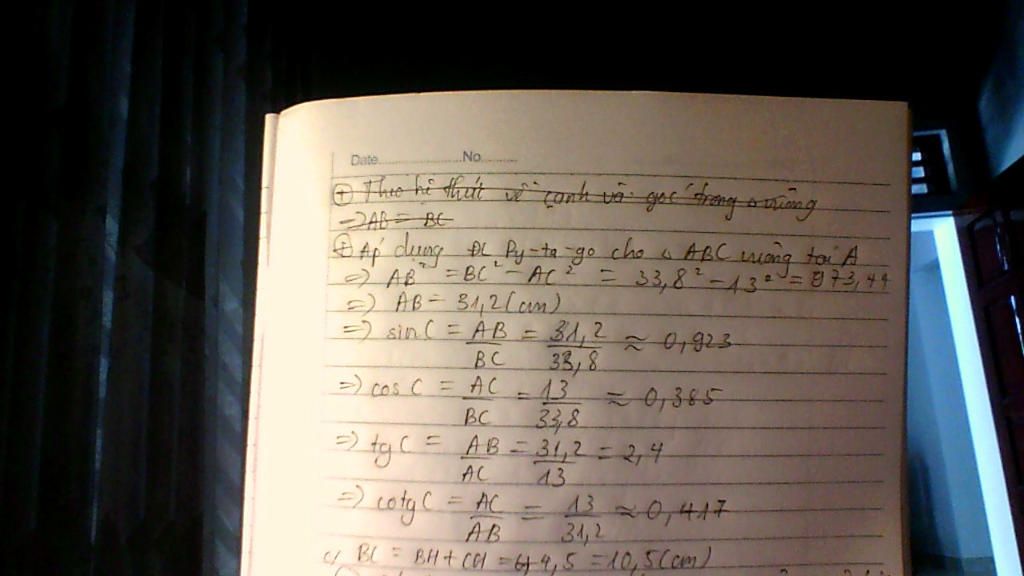 Date..................No..........
⊕ Theo hệ thức về cạnh và góc trong Δ vuông
=> AB = BC
⊕ Áp dụng ĐL Py-ta-go cho Δ ABC vuông tại A
=> AB² = BC² - AC² = 33,8² - 13² = 973,44
=> AB = 31,2 (cm)
=> sin C = AB/BC = 31,2/33,8 ≈ 0,923
=> cos C = AC/BC = 13/33,8 ≈ 0,385
=> tg C = AB/AC = 31,2/13 = 2,4
=> cotg C = AC/AB = 13/31,2 ≈ 0,417
c) BC = BH + CH = 6+4,5 = 10,5 (cm)